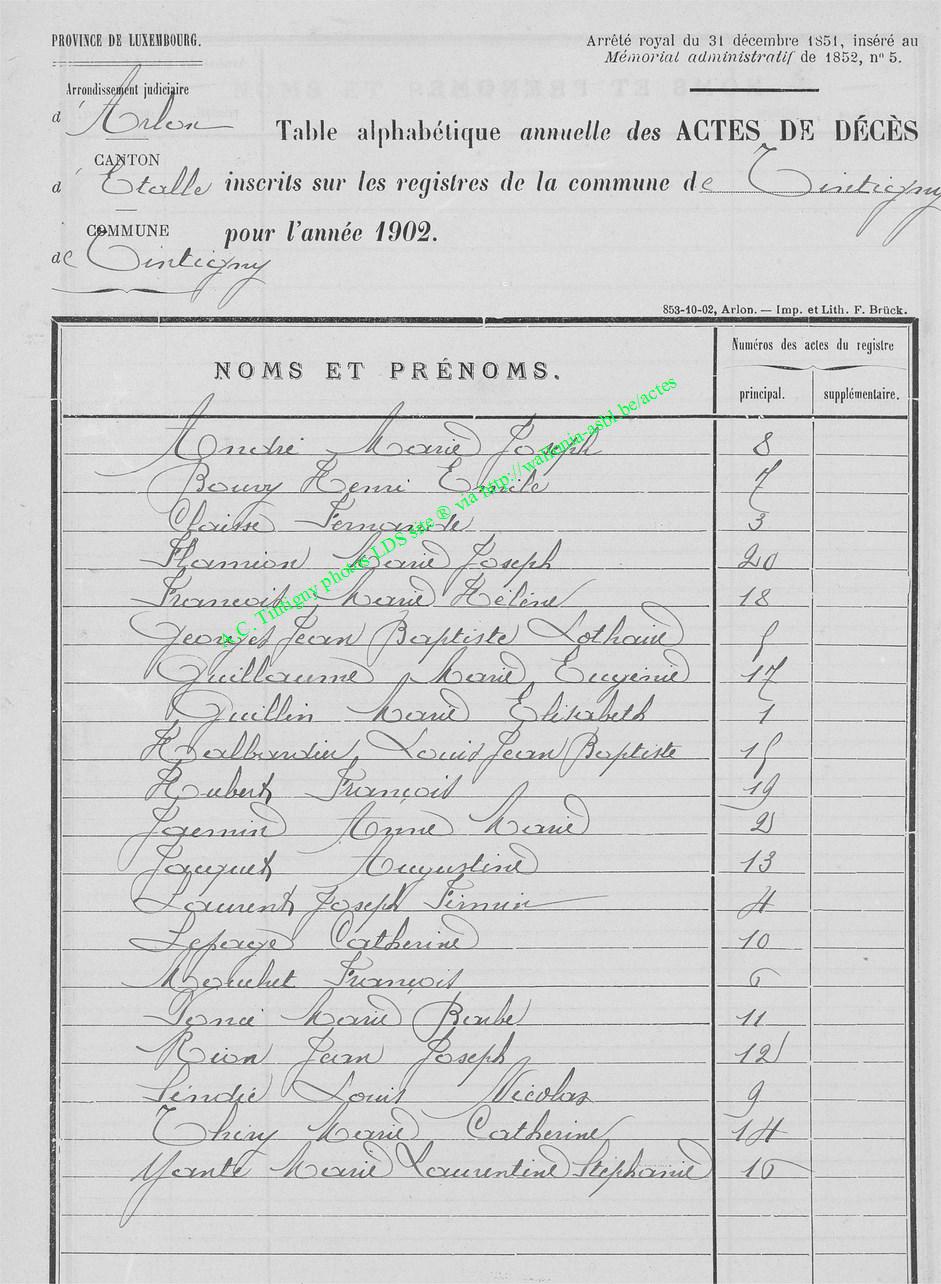 PROVINCE DE LUXEMBOURG.
Arrêté royal du 31 décembre 1851, inséré au
Mémorial administratif de 1852, nº 5.
Arrondissement judiciaire
d' Arlon
CANTON
d' Etalle
COMMUNE
de Tintigny
Table alphabétique annuelle des ACTES DE DÉCÈS
inscrits sur les registres de la commune de Tintigny
pour l'année 1902.
853-10-02, Arlon. — Imp. et Lith. F. Brück.
NOMS ET PRÉNOMS.
Numéros des actes du registre
principal. supplémentaire.
André Marie Joseph 8
Bouvy Henri Emile 7
Claisse Fernande 3
Flamion Marie Joseph 20
François Marie Hélène 18
Georges Jean Baptiste Lothaire 5
Guillaume Marie Eugénie 17
Guillin Marie Elisabeth 1
Halbardier Louis Jean Baptiste 15
Hubert François 19
Jaemin Anne Marie 2
Jacquet Augustine 13
Laurent Joseph Firmin 4
Lepage Catherine 10
Mouchet François 6
Poncé Marie Barbe 11
Rion Jean Joseph 12
Louis Nicolas 9
Théry Marie Catherine 14
Yante Marie Laurentine Stéphanie 16
A.C. Tintigny photos LDS site ® via http://wallonia-asbl.be/actes